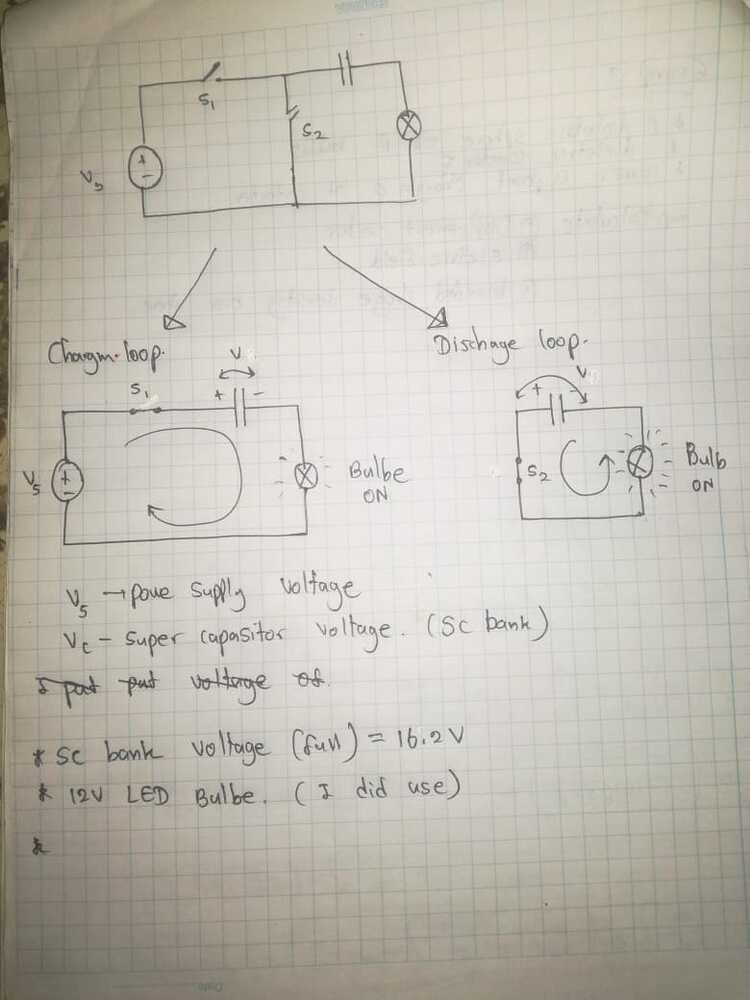 S1
S2
Vs
Chargin. loop.
Dischage loop.
V
S1
+ -
Vs
Bulbe
ON
V
+ -
S2
Bulb
ON
Vs → powe supply voltage
Vc - super capasitor voltage. (SC bank)
I put put voltage of.
* SC bank voltage (full) = 16.2V
* 12V LED Bulbe. (I did use)
*